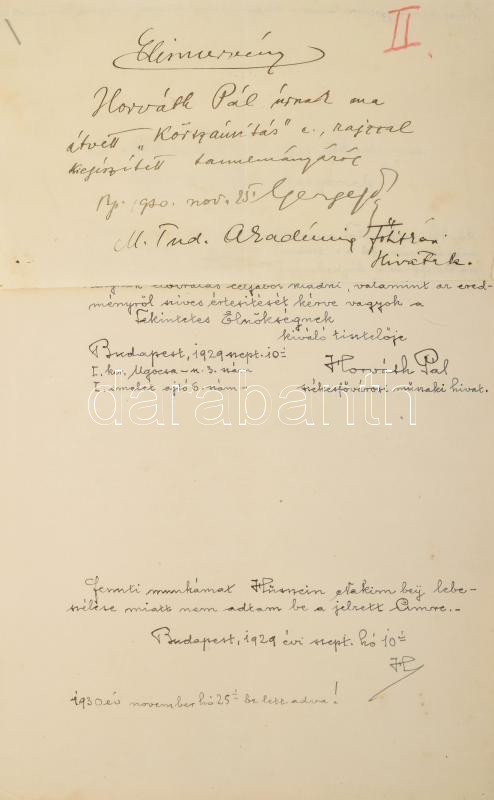 II.
Elismervény
Horváth Pál úrnak ma
átvett „Körszámítás" c., rajzzal
kiegészített tanulmányáról
Bp. 1930. nov. 25.
M. Tud. Akadémia Főtitkári
Hivatala.
kiadni, valamint az ered-
ményről szives értesitését kérve vagyok a
Tekintetes Elnökségnek
kiváló tisztelője
Budapest, 1929 szept. 10
I. ker. Ugocsa-u. 3. szám
I. emelet ajtó 6. szám
Horváth Pál
székesfővárosi műszaki hivat.
darabanth
Fennti munkámat Hüssein Hakim bey lebe-
szélése miatt nem adtam be a jelzett címre.-
Budapest, 1929 évi szept. hó 10
1930 év november hó 25 be lett adva!